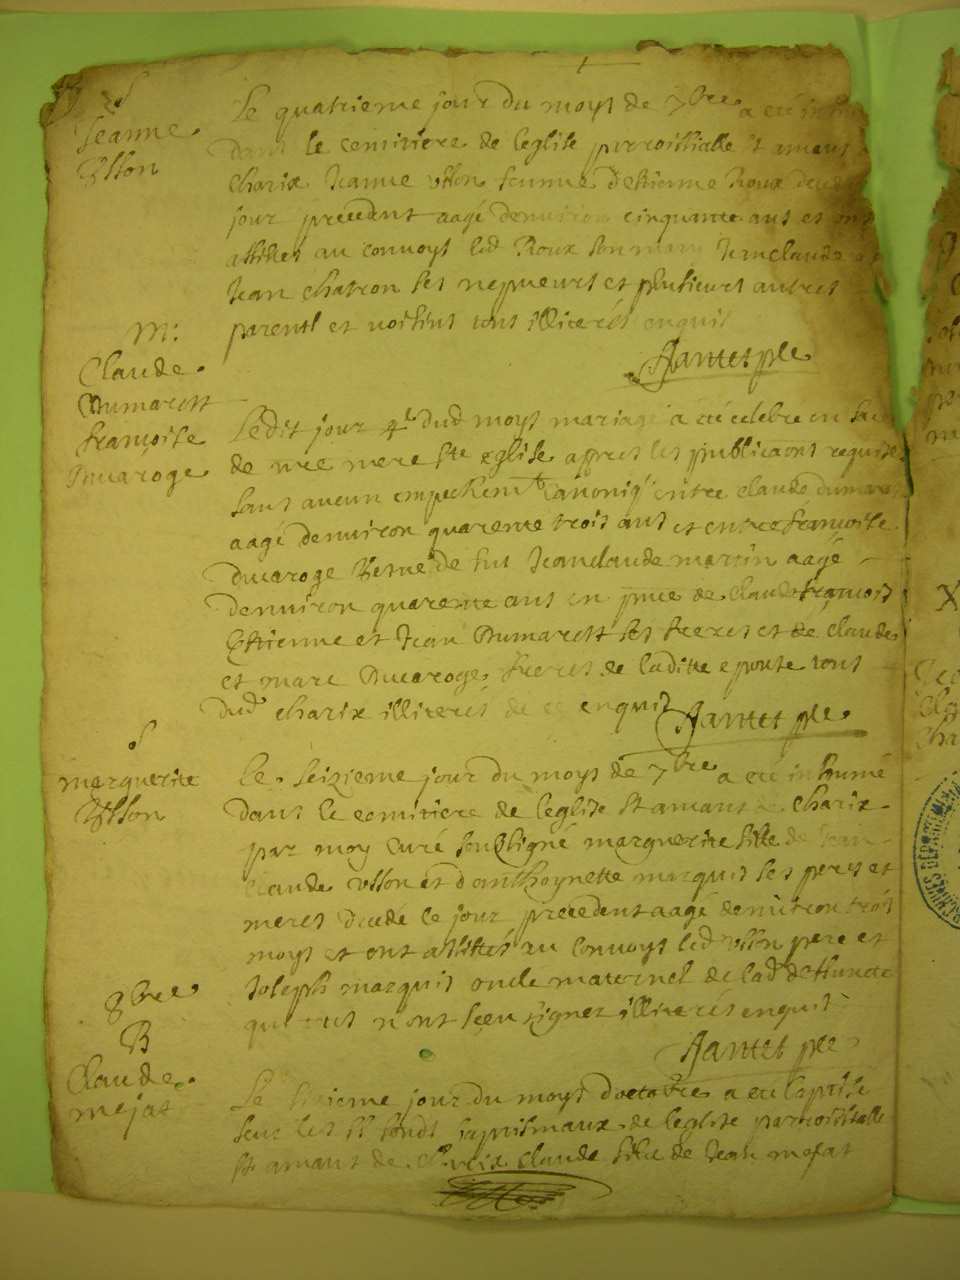 S
Jeanne
Ysson
Le quatrieme jour du moys de 7bre a eté
dans le cemitiere de leglise parroissialle St amant
charix Jeanne ysson femme d'estienne Roux
jour precedent aagé denuiron cinquante ans et ont
assistés au conuoys led Roux son mary Jeanclaude
Jean chatron ses nepueurs et plusieurs autres
parents et uoisins tous illiterés enquis
Jantet ptre
M:
Claude
Dumarest
françoise
Ducaroge
Ledit jour 4e dud moys mariage a eté celebre en face
de nre mere Ste eglise apres les publicaons requises
sans aucun empechemt canoniq entre claude dumarest
aagé denuiron quarente trois ans et entre françoise
ducaroge Vesue de fut Jeanclaude martin aagé
denuiron quarente ans en pnce de claude françois
Estienne et Jean Dumarest ses freres et de claude
et marc Ducaroge freres de laditte epouse tous
dud charix illiterés de ce enquis
Jantet ptre
S
marguerite
Ysson
Le seizieme jour du moys de 7bre a eté inhumé
dans le cemitiere de leglise St amant de charix
par moy curé soubsigné marguerite fille de Jean
claude ysson et d'anthoynette marquis ses peres et
meres decedé le jour precedent aagé denuiron trois
moys et ont assistés au conuoys led ysson pere et
Joseph marquis oncle maternel de lad deffuncte
qui tous n'ont sçeu signer illiterés enquis
Jantet ptre
8bre
B
Claude
mejat
Le sixieme jour du moys d'octobre a eté baptisé
seur les Sts fonds baptismaux de leglise parroissialle
St amant de charix claude fils de Jean mejat